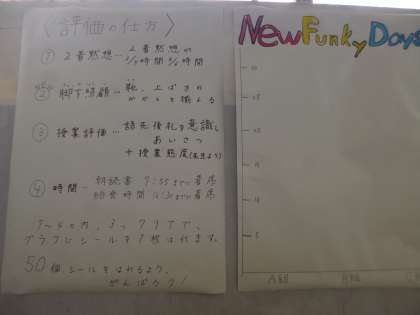 〈評価の仕方〉
① 2着黙想…2着黙想が
② 脚下照顧…靴、上ばきの
かかとを揃える
③ 授業評価…語先後礼を意識し
あいさつ
+授業態度(先生より)
④ 時間…朝読書 7:55までに着席
給食時間 12:30までに着席
①〜④の内、3つクリアで、
グラフにシールを1枚はれます。
50個シールをはれるよう、
がんばろう!
New Funky Days
30
25
20
15
10
5
A組
B組
C